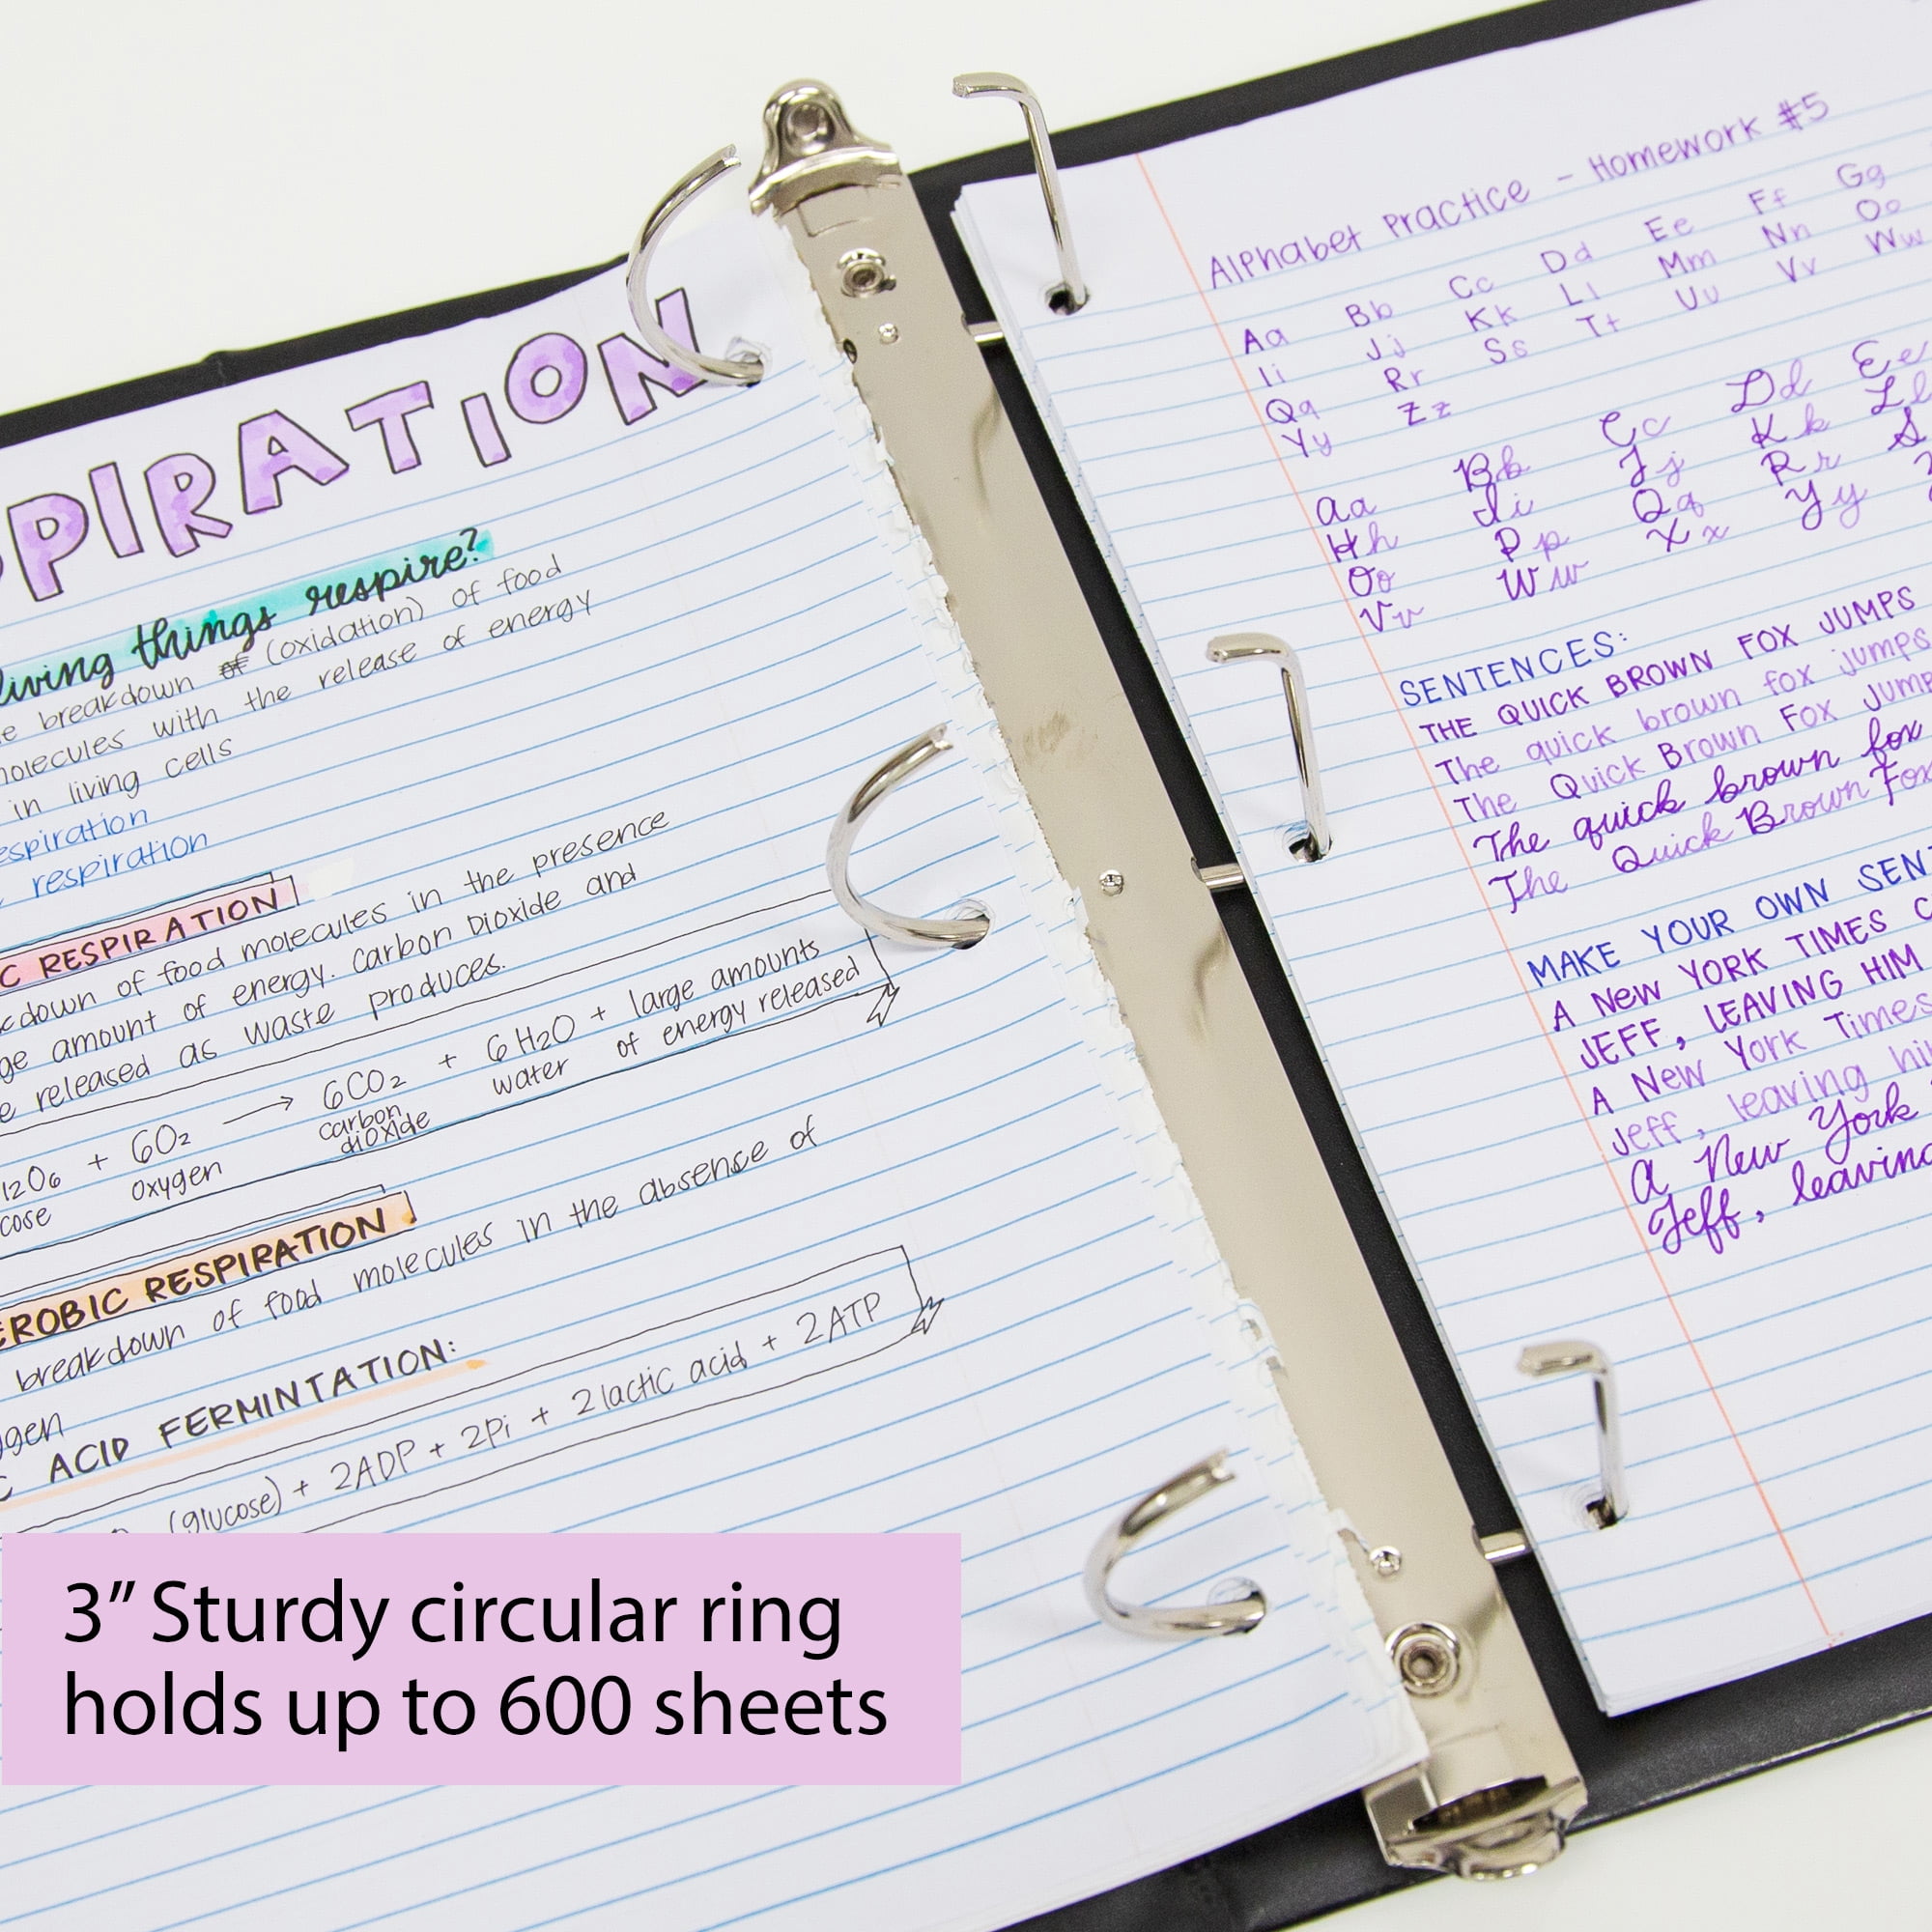 PIRATION
living things respire?
breakdown of (oxidation) of food
molecules with the release of energy
in living cells
respiration
respiration
C RESPIRATION
kdown of food molecules in the presence
ge amount of energy. Carbon Dioxide and
e released as waste produces.
12O6 + 6O2 → 6CO2 + 6H2O + large amounts
of energy released
cose oxygen carbon dioxide water
EROBIC RESPIRATION
breakdown of food molecules in the absence of
ygen
C ACID FERMINTATION:
(glucose) + 2ADP + 2Pi + 2 lactic acid + 2ATP
Alphabet Practice - Homework #5
Aa Bb Cc Dd Ee Ff Gg
Ii Jj Kk Ll Mm Nn Oo
Qq Rr Ss Tt Uu Vv Ww
Yy Zz
Aa Bb Cc Dd Ee
Hh Ii Jj Kk Ll
Oo Pp Qq Rr S
Vv Ww Xx Yy
SENTENCES:
THE QUICK BROWN FOX JUMPS
The quick brown fox jumps
The Quick Brown Fox Jump
The quick brown fox
The Quick Brown Fox
MAKE YOUR OWN SENT
A NEW YORK TIMES C
JEFF, LEAVING HIM
A New York Times
Jeff, leaving hi
A New York
Jeff, leaving
3” Sturdy circular ring
holds up to 600 sheets